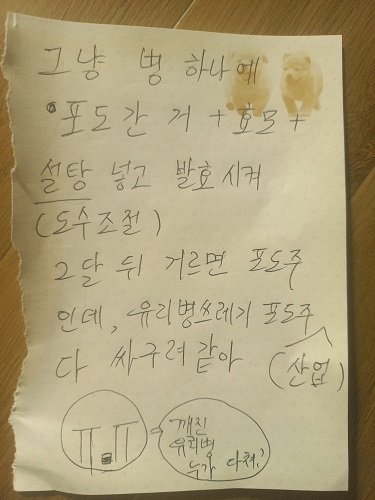 그냥 병 하나에
포도간 거 + 효모 +
설탕 넣고 발효시켜
(도수조절)
2달 뒤 거르면 포도주
인데, 유리병쓰레기 포도주
다 싸구려같아 (산업)
ㅠ.ㅠ = 깨진
유리병
누가 다쳐?